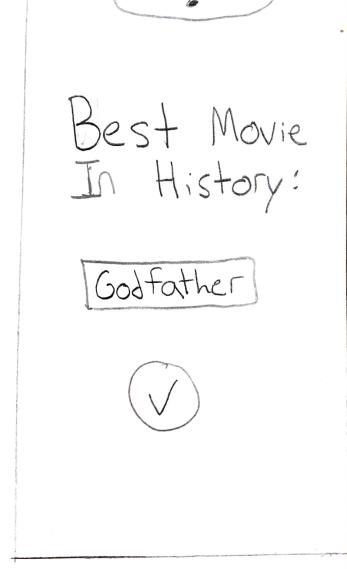 Best Movie
In History:
Godfather